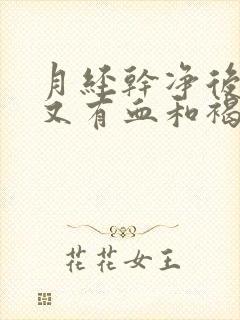 月经幹净後
又有血和褐
花花女王